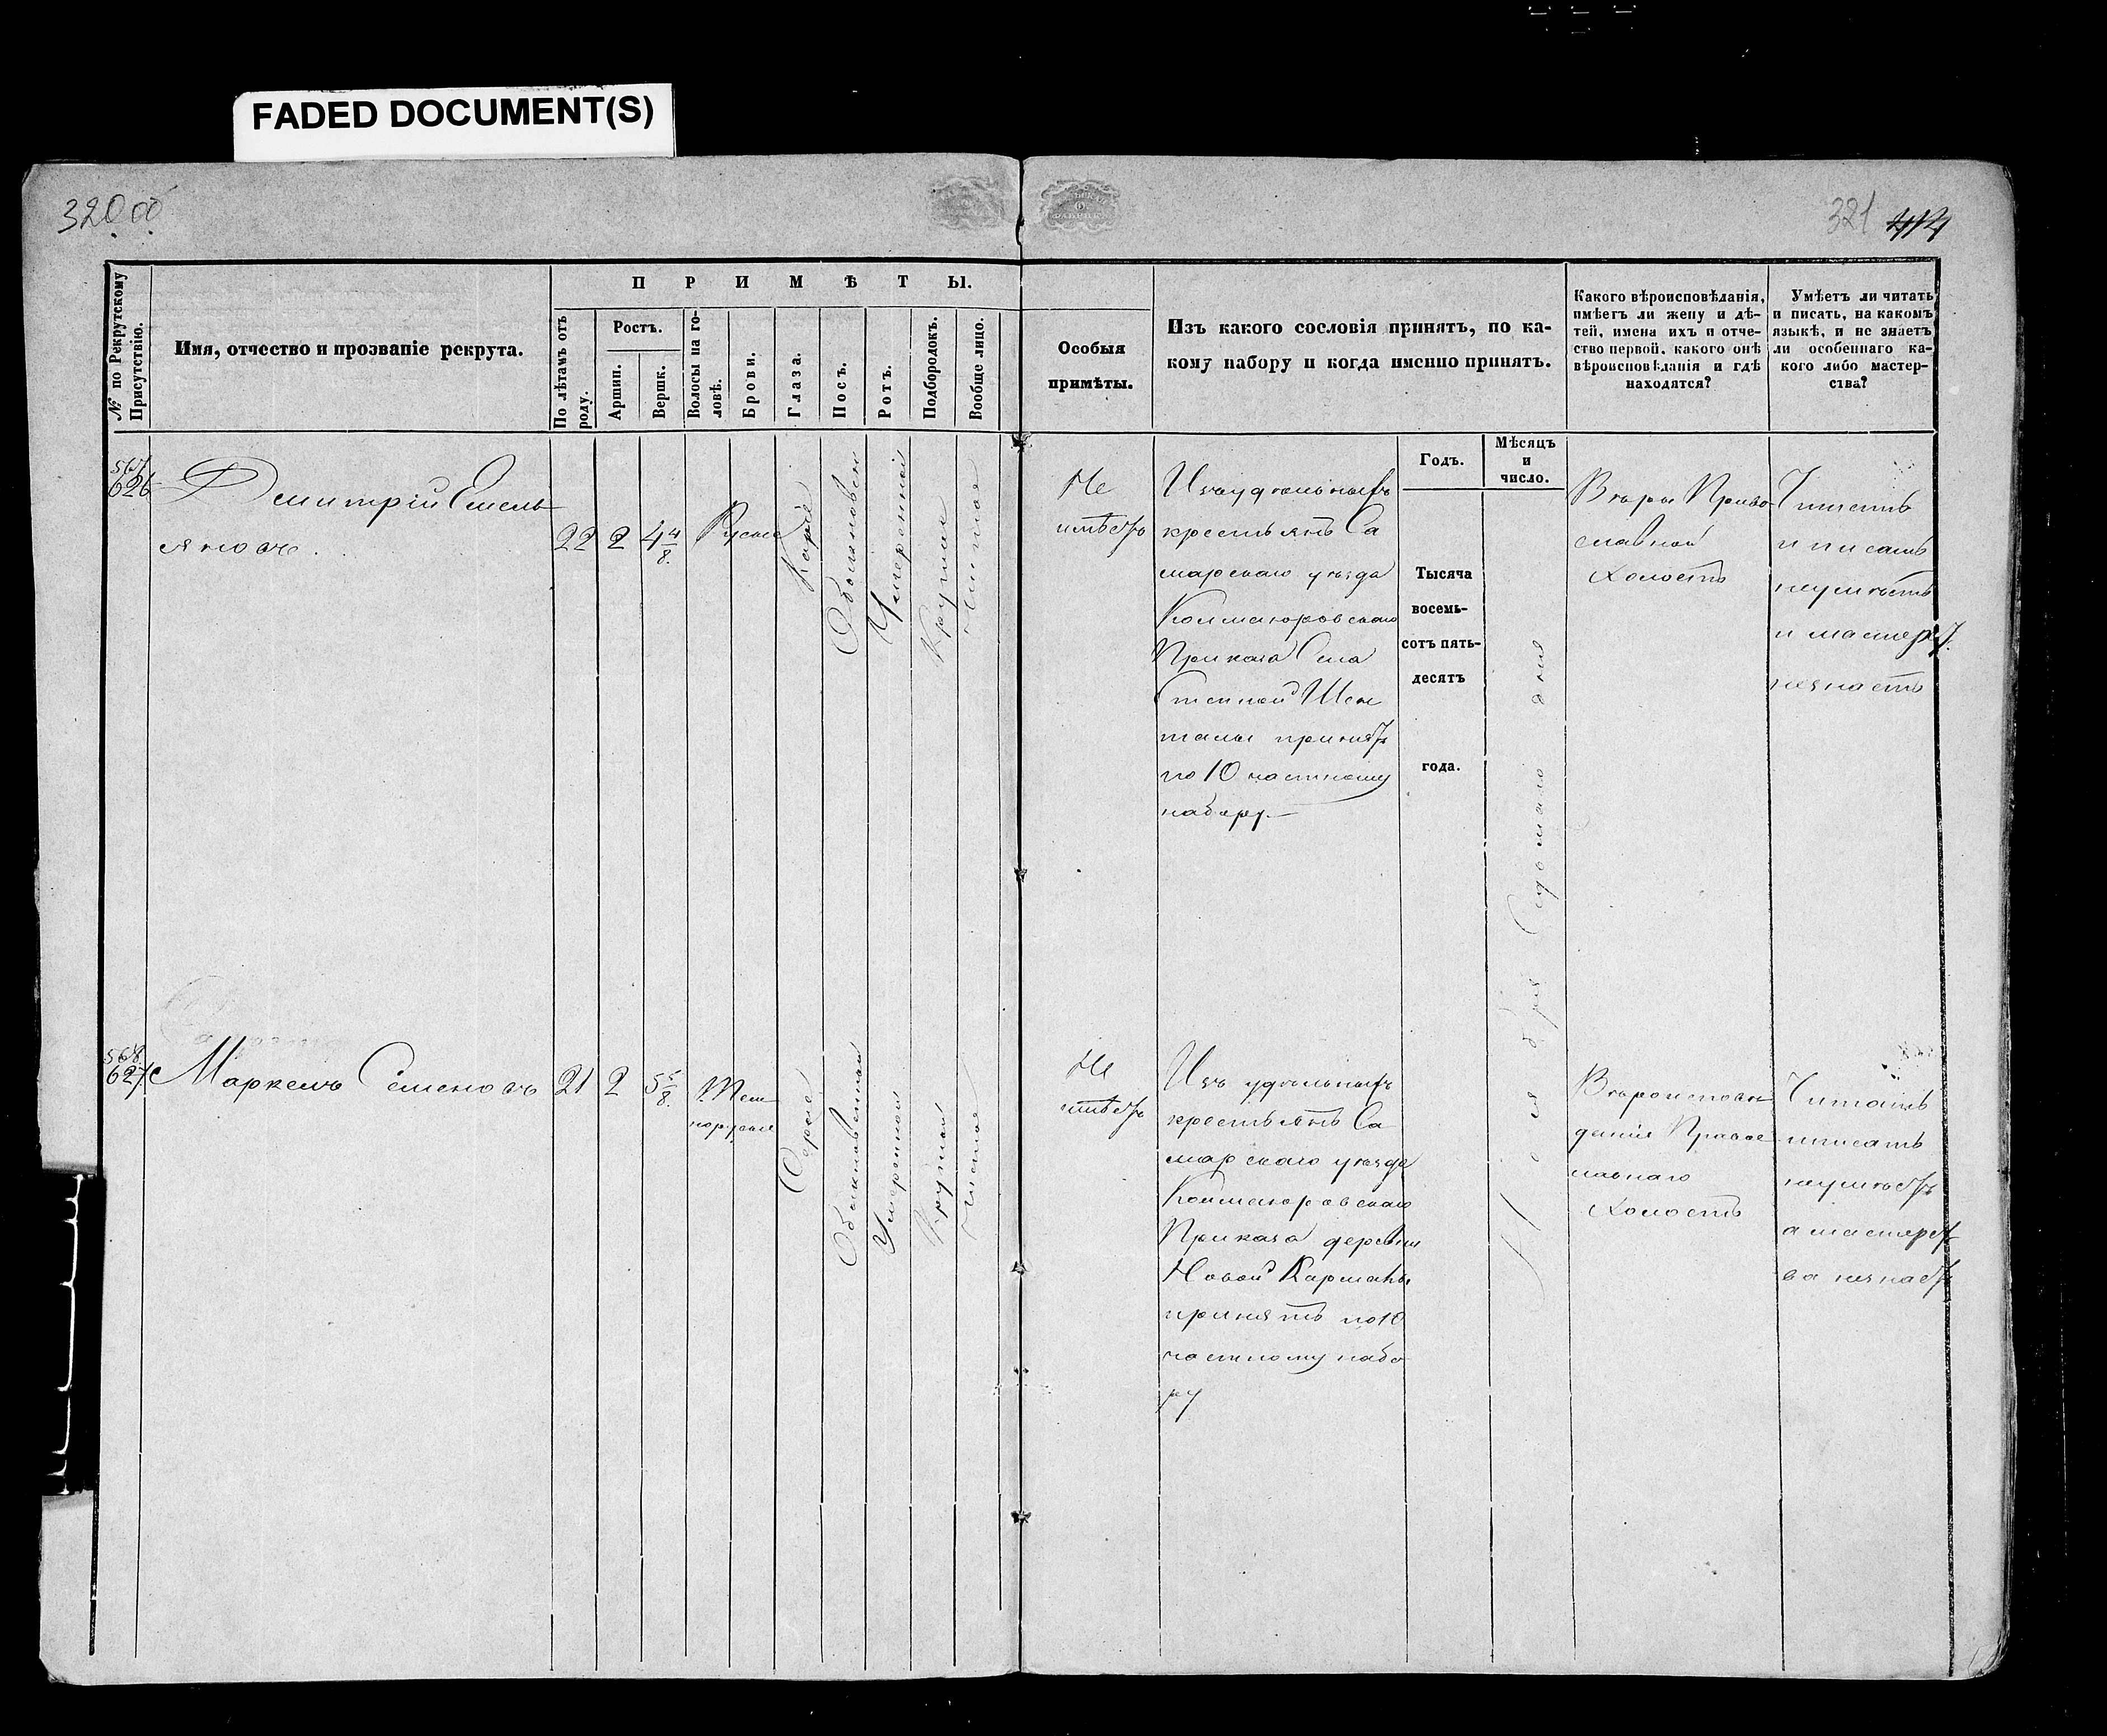 FADED DOCUMENT(S)
320 об
321 414
№ по Рекрутскому Присутствію.
Имя, отчество и прозваніе рекрута.
ПРИМѢТЫ.
По лѣтамъ отъ роду.
Ростъ.
Аршин.
Вершк.
Волосы на головѣ.
Брови.
Глаза.
Носъ.
Ротъ.
Подбородокъ.
Вообще лицо.
Особыя
примѣты.
Изъ какого сословія принятъ, по ка-
кому набору и когда именно принятъ.
Какого вѣроисповѣданія,
имѣетъ ли жену и дѣ-
тей, имена ихъ и отче-
ство первой, какого онѣ
вѣроисповѣданія и гдѣ
находятся?
Умѣетъ ли читать
и писать, на какомъ
языкѣ, и не знаетъ
ли особеннаго ка-
кого либо мастер-
ства?
Годъ.
Мѣсяцъ
и
число.
567
626
Дмитрій Емель
яновъ.
22 2 4 4/8.
Русые
Каріе
Обыкновен
Умеренной
Круглой
Чистое
Не
имѣетъ
Изъ удельныхъ
крестьянъ Са
марскаго уезда
Кошкинровскаго
Приказа Села
Степной Шен
талы принятъ
по 10 частному
набору.
Тысяча
восемь-
сотъ пять-
десятъ
года.
Ноября Седьмаго дня
Веры Право
славной
Холостъ
Читать
и писать
неумеетъ
и мастерст.
незнаетъ
568
627
Маркелъ Семеновъ
21 2 5 5/8.
Тем
норусые
Серые
Обыкновенной
Умеренной
Круглой
Чистое
Не
имѣетъ
Изъ удельныхъ
крестьянъ Са
марскаго уезда
Приказа деревни
Новой Кармалы
принятъ по 10
частному набо
ру
Вероисповѣ
данія Правос
лавнаго
Холостъ
Читать
и писать
неумеетъ
а мастерст
ва незнаетъ